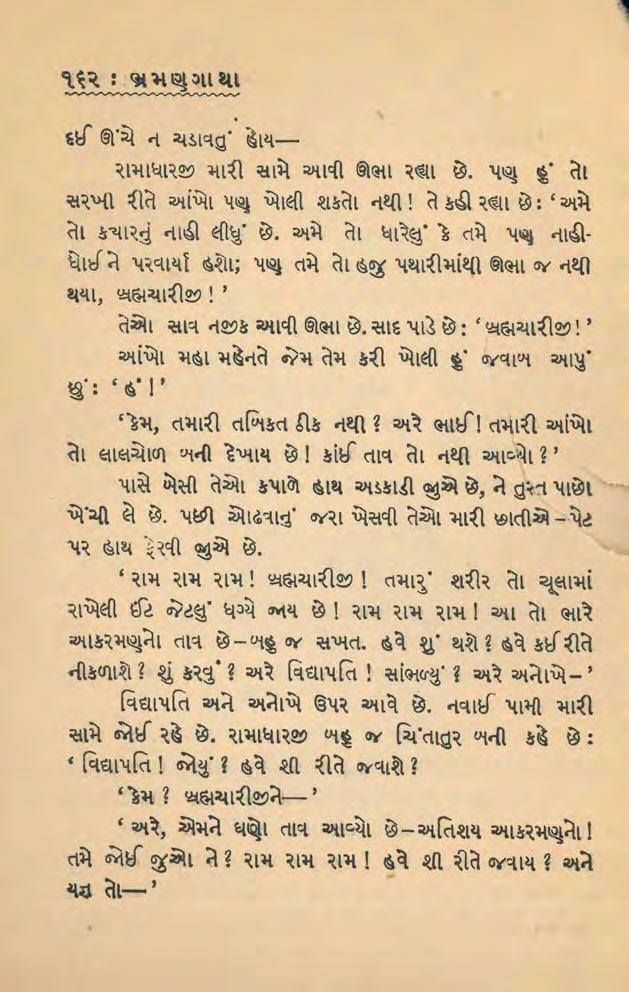 ૧૬૨ : ભ્રમણગાથા
દઈ ઊંચે ન ચડાવતું હોય—
રામાધારજી મારી સામે આવી ઊભા રહ્યા છે. પણ હું તો
સરખી રીતે આંખો પણ ખોલી શકતો નથી! તે કહી રહ્યા છે: ‘અમે
તો ક્યારનું નાહી લીધું છે. અમે તો ધારેલું કે તમે પણ નાહી-
ધોઈને પરવાર્યા હશો; પણ તમે તો હજુ પથારીમાંથી ઊભા જ નથી
થયા, બ્રહ્મચારીજી!’
તેઓ સાવ નજીક આવી ઊભા છે. સાદ પાડે છે: ‘બ્રહ્મચારીજી!’
આંખો મહા મહેનતે જેમ તેમ કરી ખોલી હું જવાબ આપું
છું: ‘હં!’
‘કેમ, તમારી તબિકત ઠીક નથી? અરે ભાઈ! તમારી આંખો
તો લાલચોળ બની દેખાય છે! કાંઈ તાવ તો નથી આવ્યો?’
પાસે બેસી તેઓ કપાળે હાથ અડકાડી જુએ છે, ને તુરત પાછો
ખેંચી લે છે. પછી ઓઢવાનું જરા ખેસવી તેઓ મારી છાતીએ–પેટ
પર હાથ ફેરવી જુએ છે.
‘રામ રામ રામ! બ્રહ્મચારીજી! તમારું શરીર તો ચૂલામાં
રાખેલી ઈંટ જેટલું ધગ્યે જાય છે! રામ રામ રામ! આ તો ભારે
આકરમણનો તાવ છે–બહુ જ સખત. હવે શું થશે? હવે કઈ રીતે
નીકળાશે? શું કરવું? અરે વિદ્યાપતિ! સાંભળ્યું? અરે અનોખે–’
વિદ્યાપતિ અને અનોખે ઉપર આવે છે. નવાઈ પામી મારી
સામે જોઈ રહે છે. રામાધારજી બહુ જ ચિંતાતુર બની કહે છે:
‘વિદ્યાપતિ! જોયું? હવે શી રીતે જવાશે?
‘કેમ? બ્રહ્મચારીજીને—’
‘અરે, એમને ઘણો તાવ આવ્યો છે–અતિશય આકરમણનો!
તમે જોઈ જુઓ ને? રામ રામ રામ! હવે શી રીતે જવાય? અને
યજ્ઞ તો—’